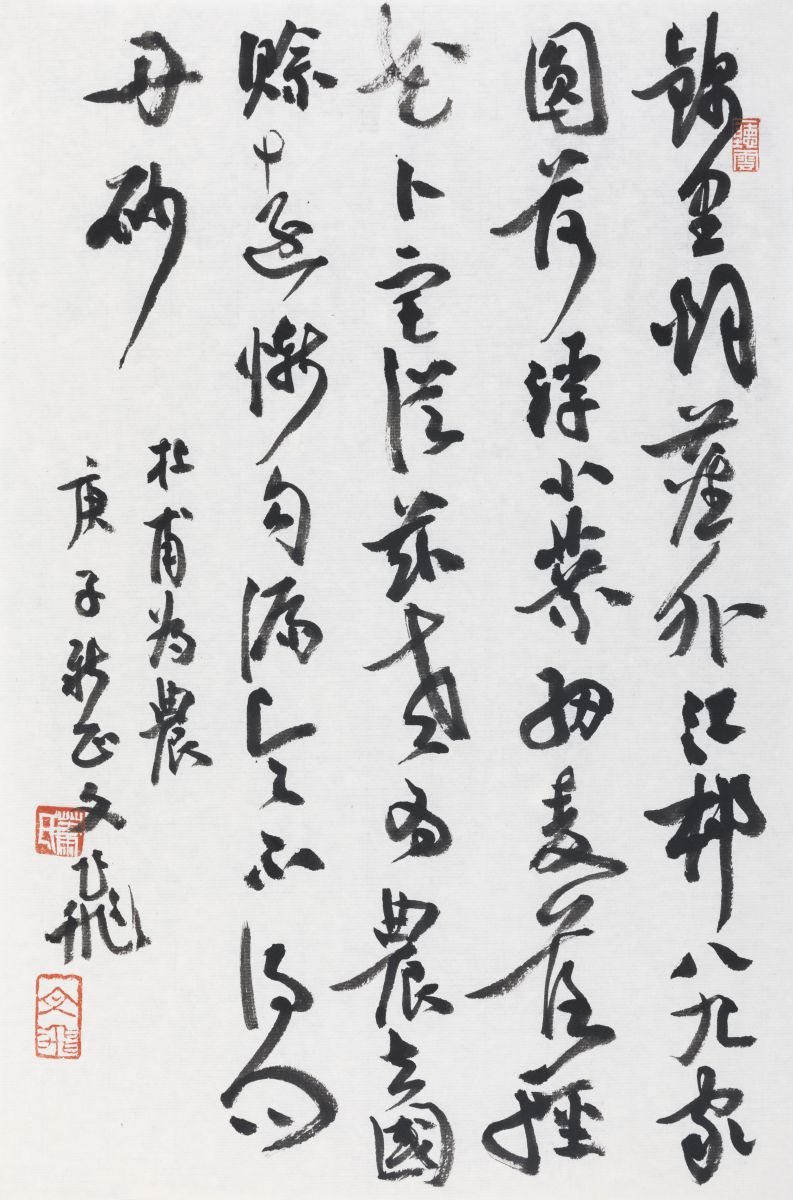 錦里烟塵外江邨八九家
圓荷浮小葉細麥落輕
花卜宅從茲老為農去國
賒遠慚句漏令不得問
丹砂
杜甫為農
庚子新正文飛
聽雲
蕭氏
文飛